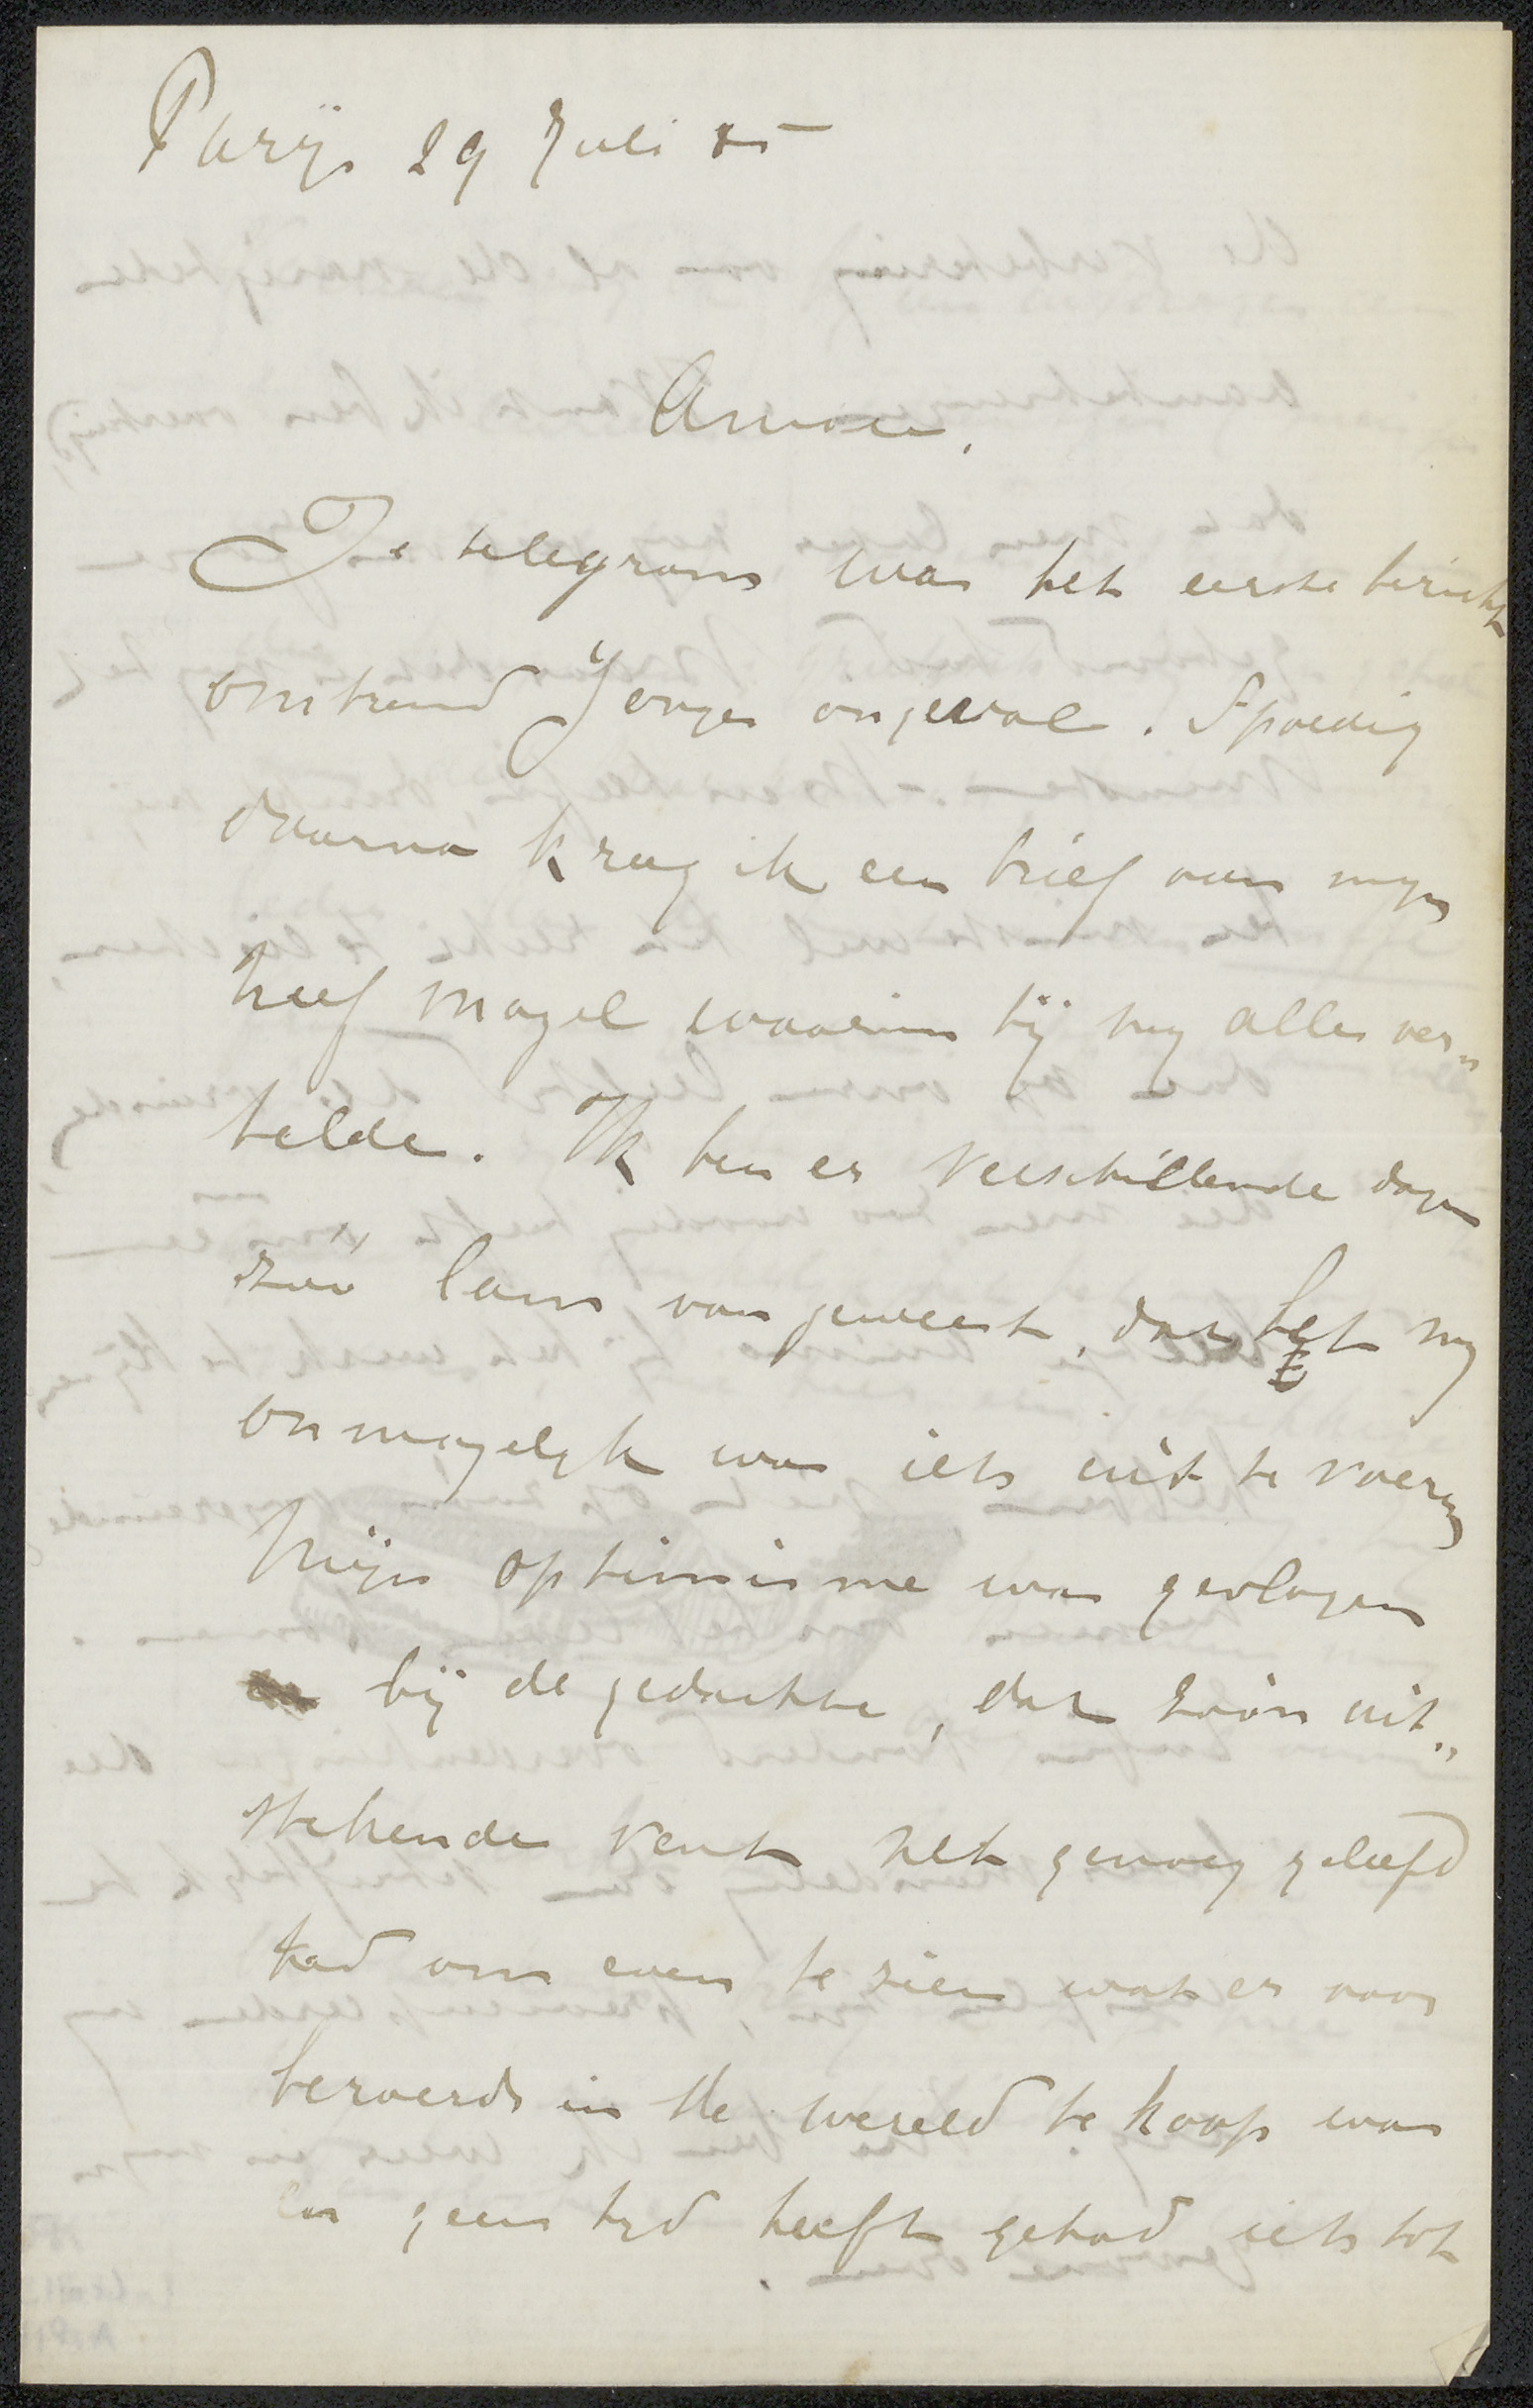 Parijs 29 Juli 85
Amice,
Je telegram was het eerste bericht
omtrend Jonges ongeval. Spoedig
daarna kreeg ik een brief van mijn
neef Mogel waarin hij my alles ver„
telde. Ik ben er verschillende dagen
zóó lam van geweest, dat het my
onmogelyk was iets uit te voeren
Mijn optimisme was gevlogen
bij de gedachte, dat zóón uit„
stekende vent net genoeg geleefd
had om even te zien wat er voor
beroerds in de wereld te koop was
en geen tyd heeft gehad iets tot